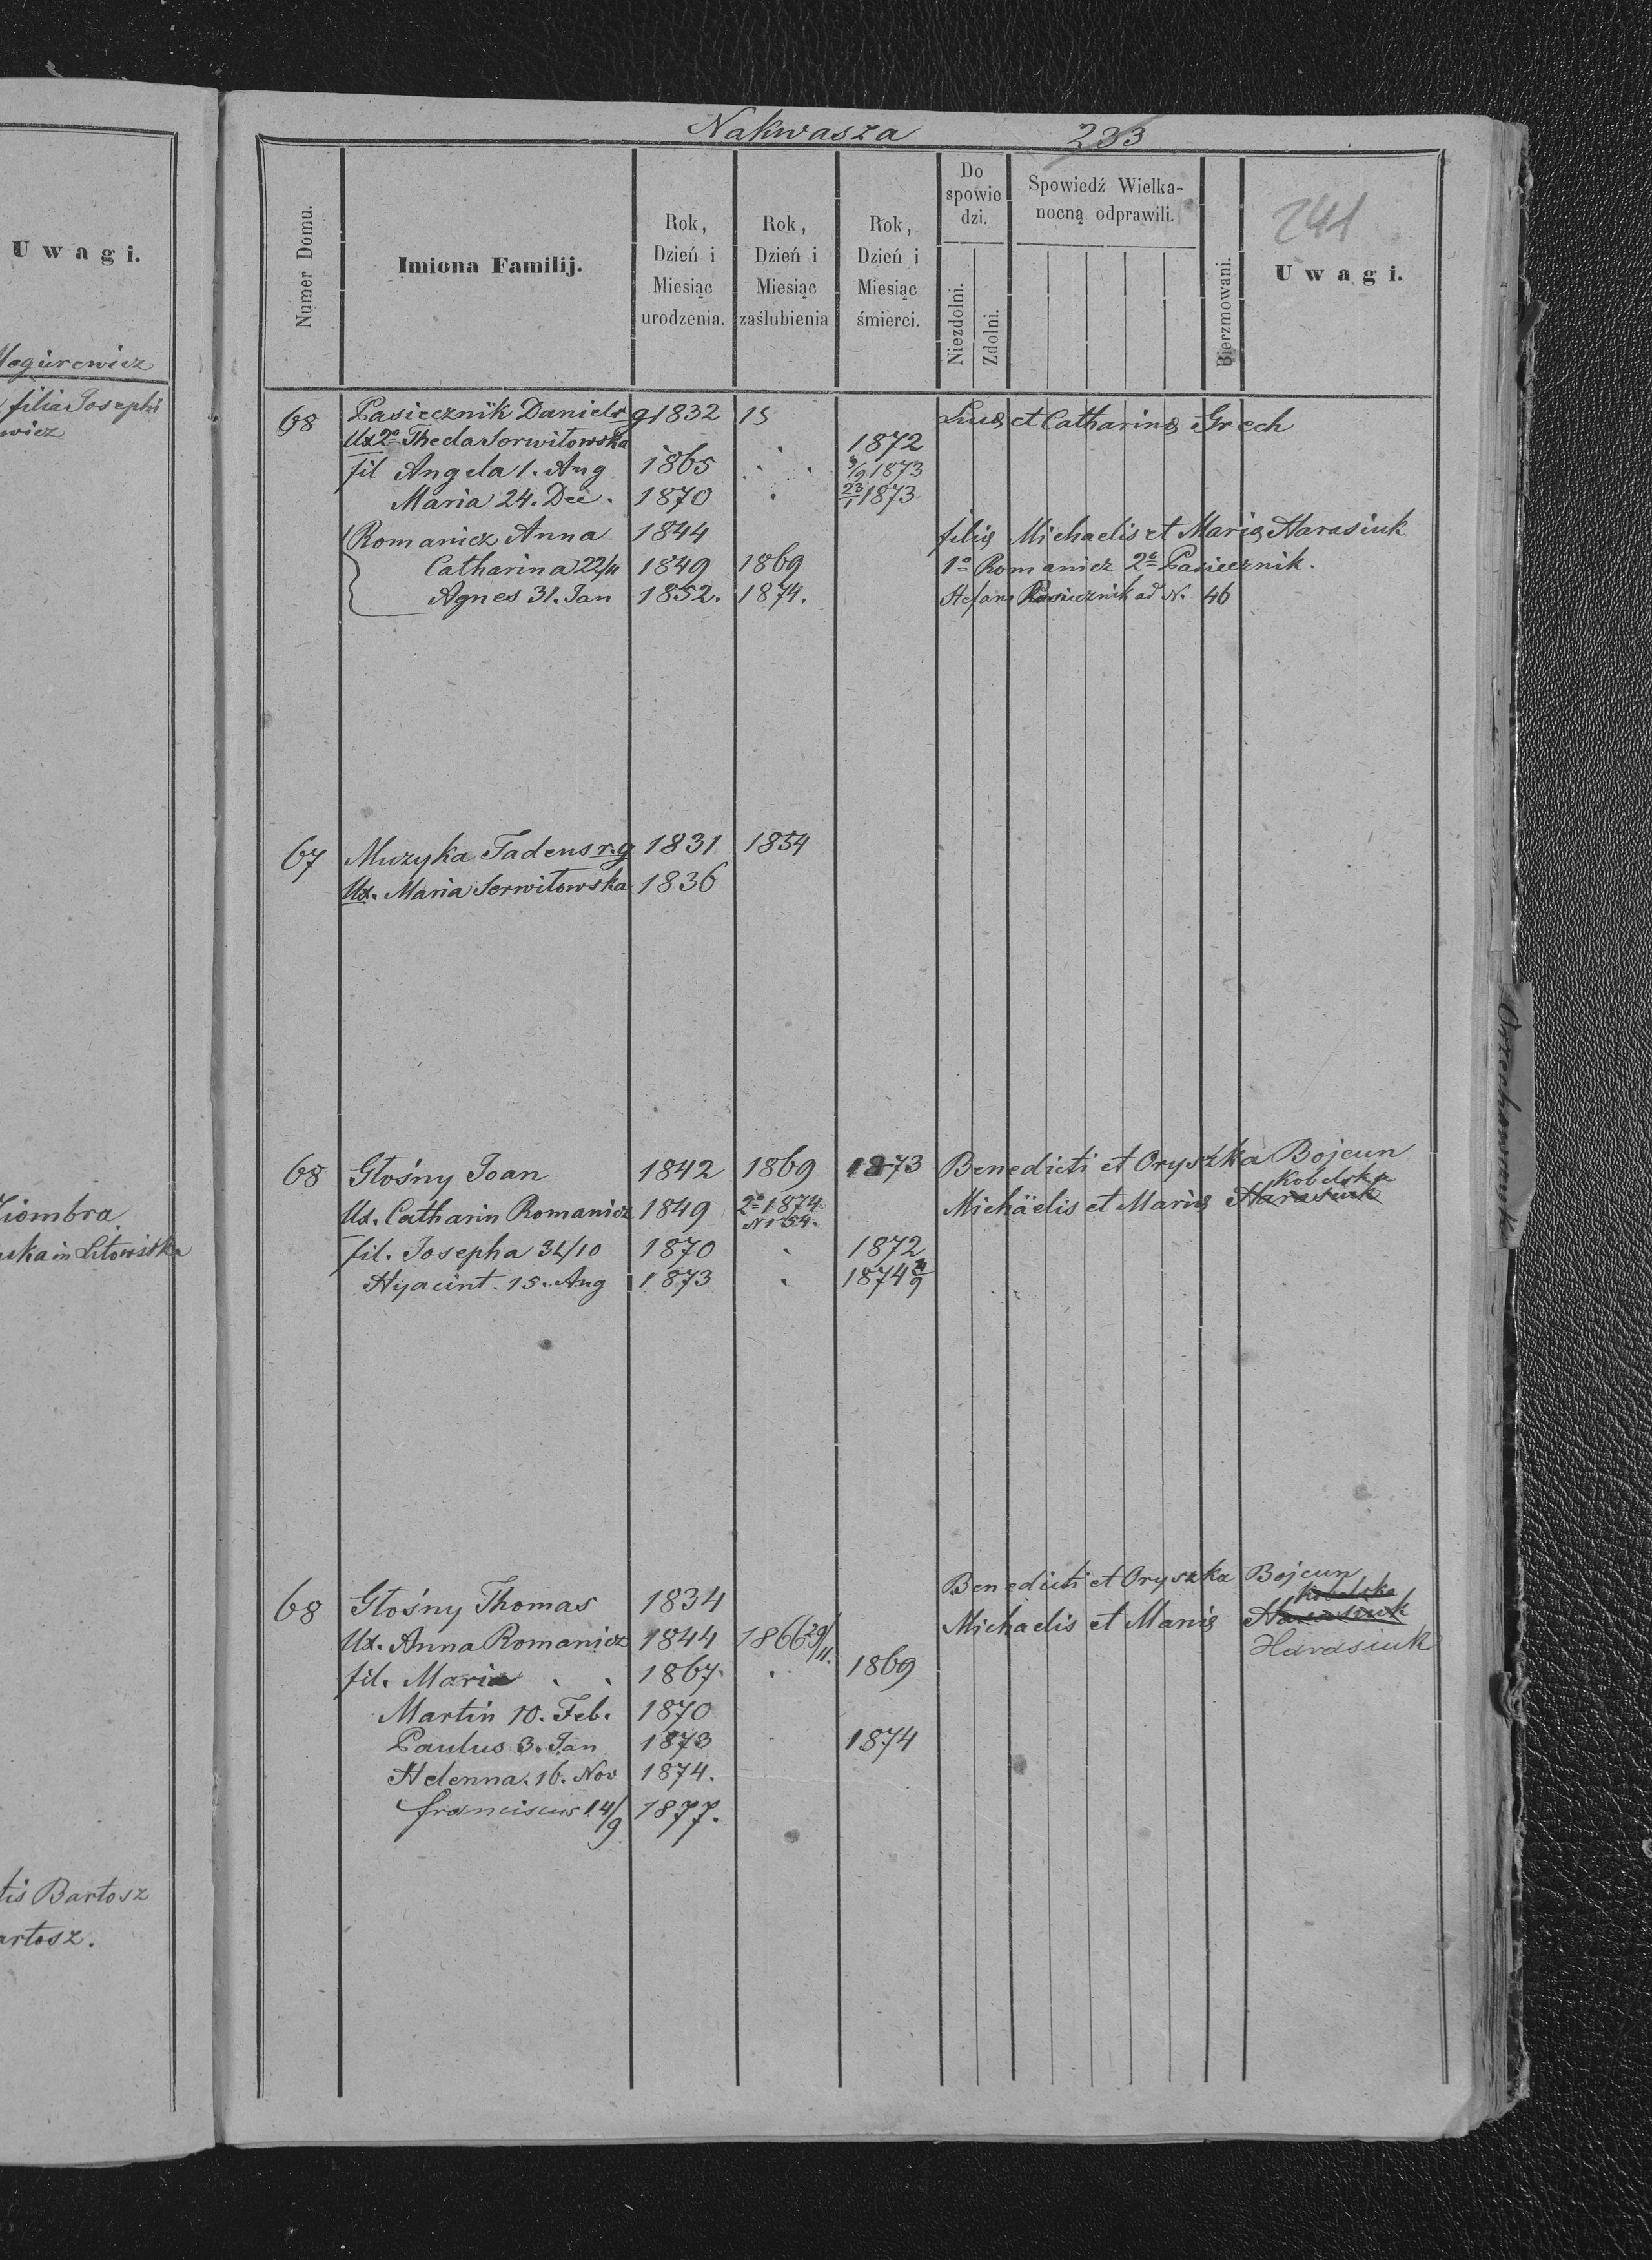 Nakwasza 233
241
Numer Domu.
Imiona Familij.
Rok, Dzień i Miesiąc urodzenia.
Rok, Dzień i Miesiąc zaślubienia
Rok, Dzień i Miesiąc śmierci.
Do spowiedzi.
Niezdolni.
Zdolni.
Spowiedź Wielkanocną odprawili.
Bierzmowani.
Uwagi.
68 Pasiecznik Daniel r g 1832 15 Lucę et Catharinę Grech
Ux 2o Thecla Serwitowska 1872
fil Angela 1. Aug 1865 . . /9 1873
Maria 24. Dec. 1870 . 23/1 1873
Romanicz Anna 1844 filię Michaelis et Marię Harasiuk
Catharina 22/11 1849 1869 1o Romanicz 2o Pasiecznik.
Agnes 31. Jan 1852. 1874. Stefan Pasiecznik ad N. 46
67 Muzyka Tadeus r.g 1831 1854
Ux. Maria Serwitowska 1836
68 Głośny Joan 1842 1869 1873 Benedicti et Oryszka Bojcun
Kobelska
Ux. Catharin Romanicz 1849 2o 1874 N 154. Michäelis et Marię Harasiuk
fil. Josepha 31/10 1870 . 1872
Hyacint. 15. Aug 1873 . 1874 /9
68 Głośny Thomas 1834 Benedicti et Oryszka Bojcun
Kobelska
Ux. Anna Romanicz 1844 1866 29/11. Michaelis et Marię Harasiuk
Harasiuk
fil. Maria . . 1867. . 1869
Martin 10. Feb. 1870
Paulus 3. Jan 1873 1874
Helenna. 16. Nov 1874.
franciscus 14/9 1877.
Uwagi.
filia Josephi
wicz
Ziombra
uka in Litowiska
tis Bartosz
artosz.